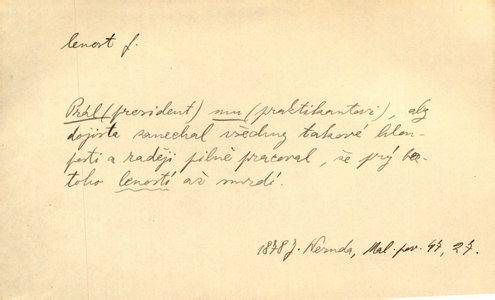 lenost f.
Přál (president) mu (praktikantovi), aby
dojista zanechal všechny takové hlou-
posti a raději pilně pracoval, že prý bez
toho leností až smrdí.
1878 J. Neruda, Mal. pov. 47, 27.